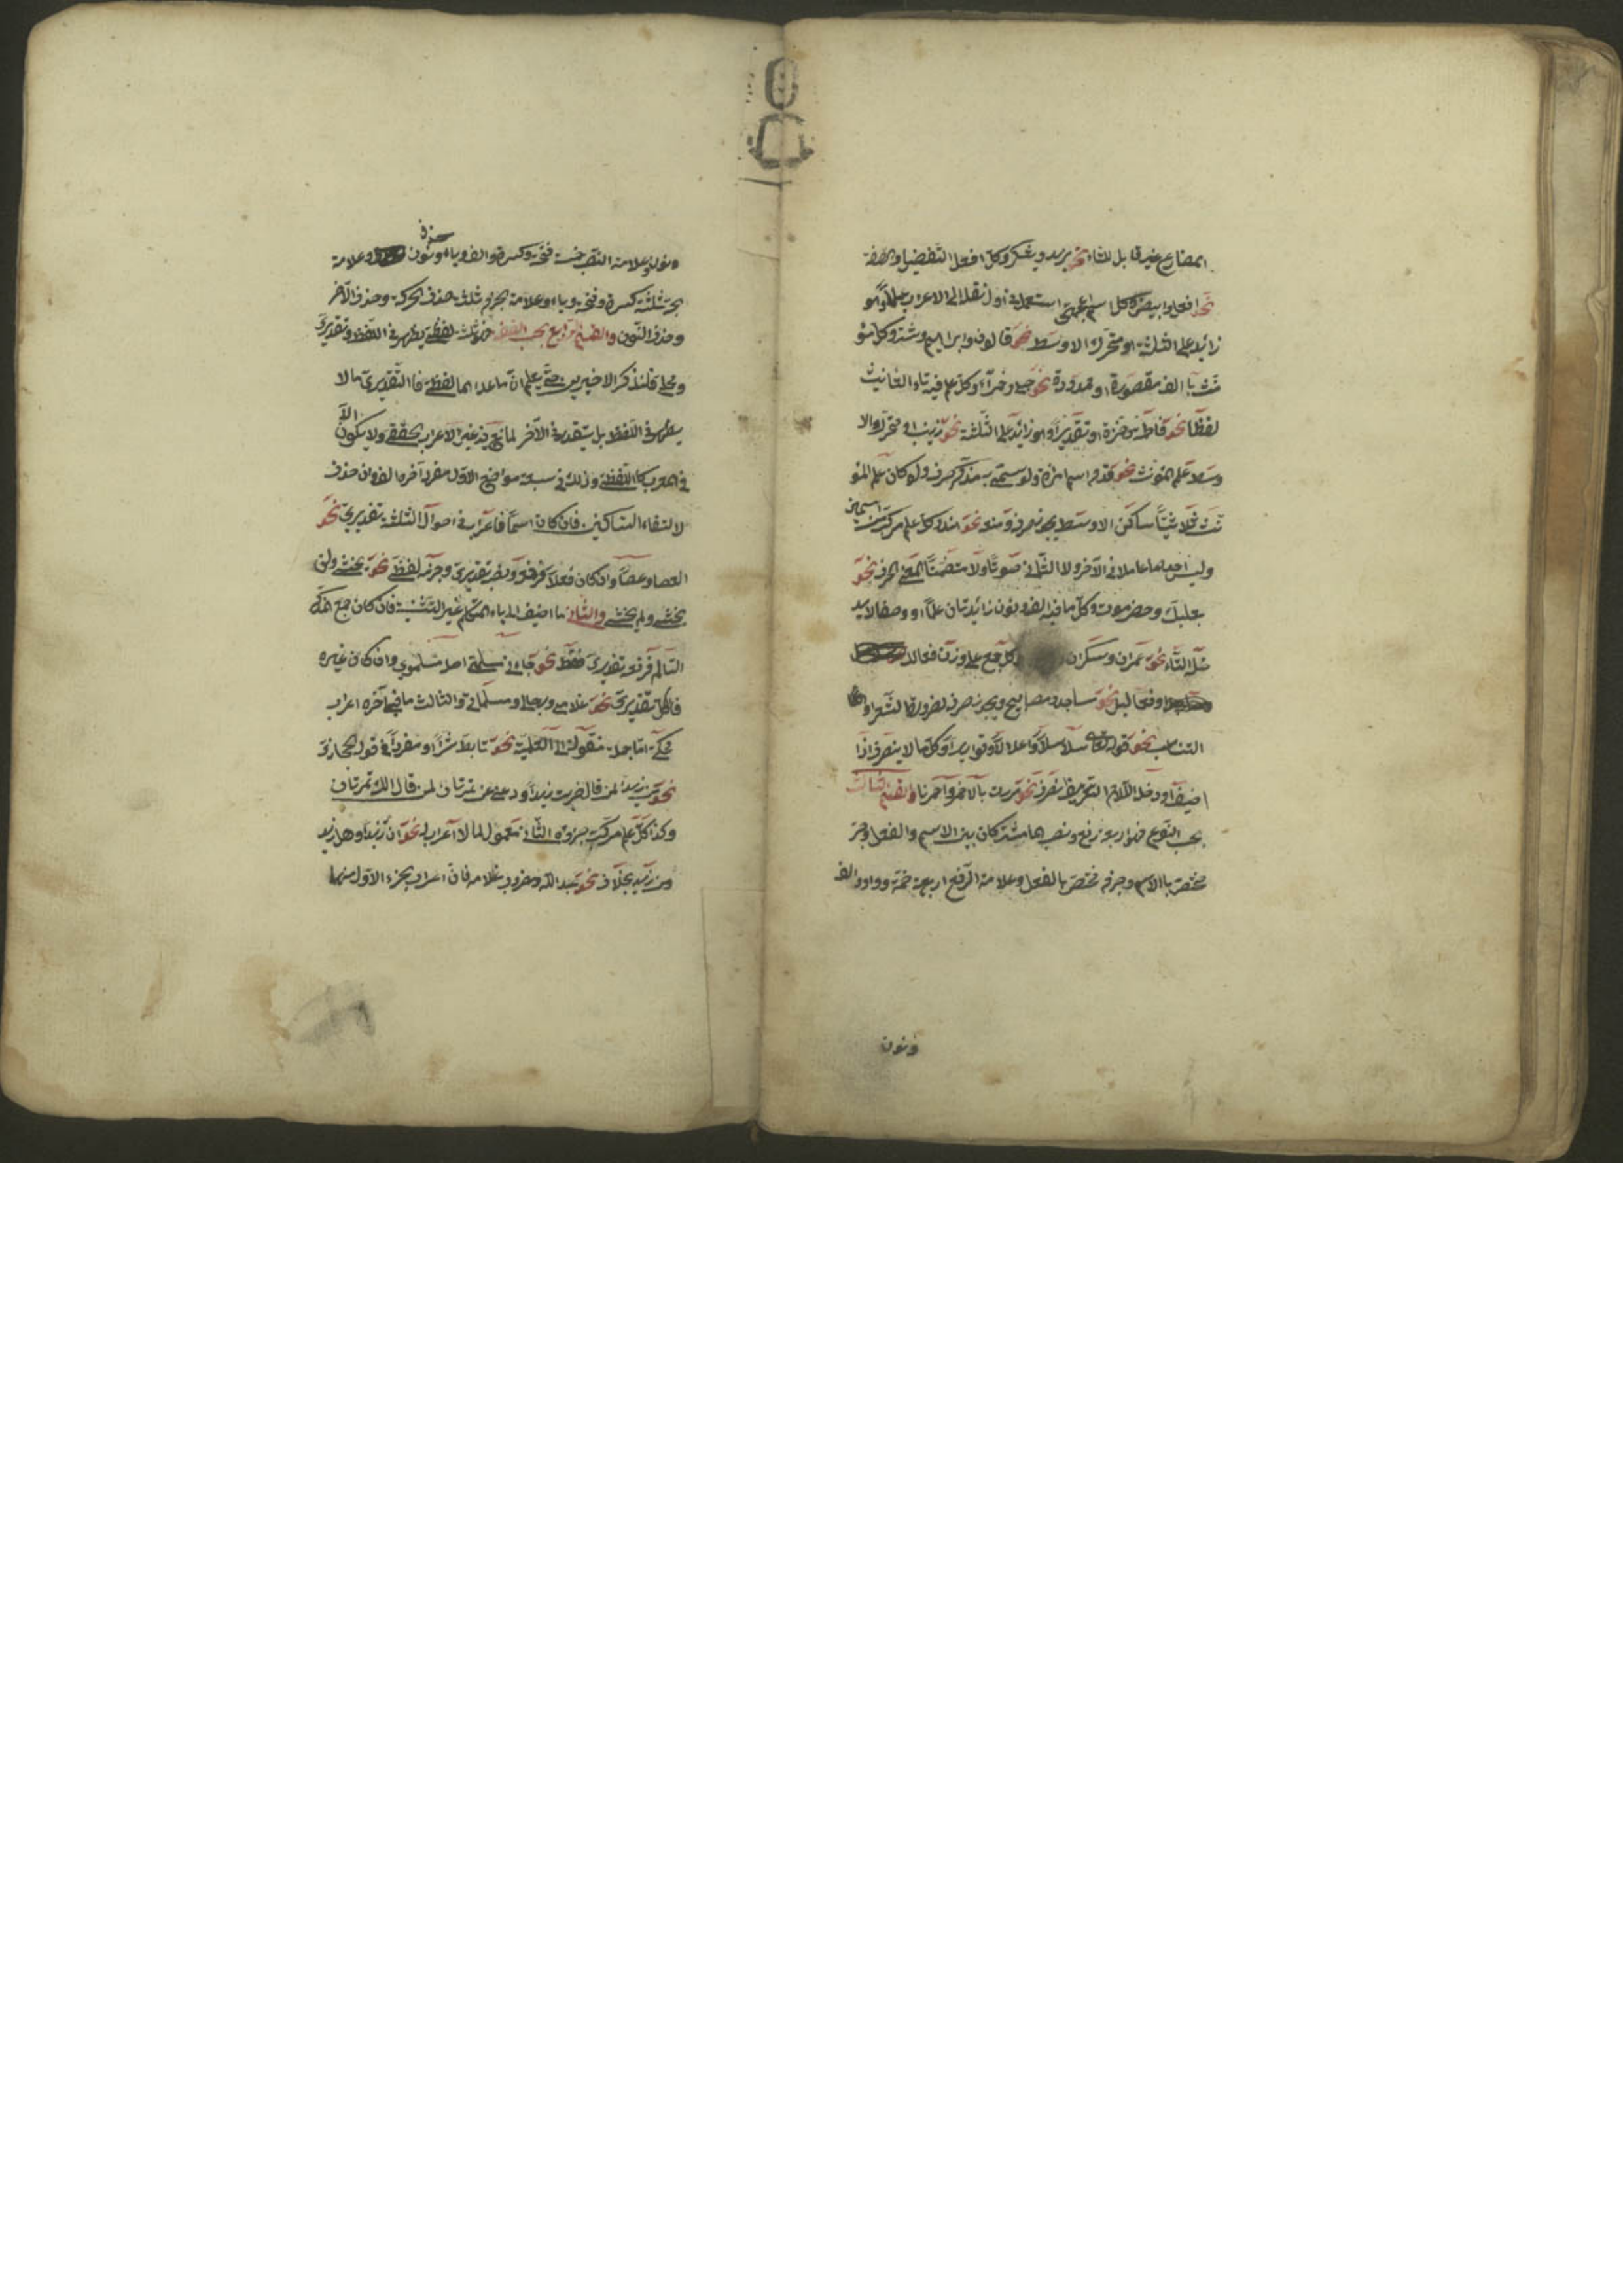 المضارع غير قابل للتاء نحو يزيد ويشكر وكل افعل التفضيل والصفة
نحو افعل وابيض وكل اسم اعجمى استعمل فى اول نقله الى الاعراب علما وهو
زائد على الثلثة او متحرك الاوسط نحو قالون وابراهيم وشتر وكل مؤ
نث بالف مقصورة او ممدودة نحو حبلى وحمراء وكل علم فيه تاء التانيث
لفظا نحو فاطمة وحمزة او تقديرا وهو زائد على الثلثة نحو زينب او متحرك الا
وسط علم المؤنث نحو قدم اسم امراة ولو سمى به مذكر صرف ولو كان علم المؤ
نث ثلاثيا ساكن الاوسط يجوز صرفه ومنعه نحو هند وكل علم مركب من اسمين
وليس احدهما عاملا فى الآخر ولا الثانى صوتا ولا متضمنا لمعنى الحرف نحو
بعلبك وحضرموت وكل ما فيه الف ونون زائدتان علما او وصفا لا يد
خله التاء نحو عمران وسكران وكل جمع على وزن فعالل
او فعاليل نحو مساجد ومصابيح ويجوز صرفه لضرورة الشعر او
التناسب نحو قوله تعالى سلاسلا واغلالا وقواريرا وكل ما لا ينصرف اذا
اضيف او دخله اللام التعريف انصرف نحو مررت بالاحمر واحمرنا والقسم الثالث
بحسب النوع فهو اربعة رفع ونصب هما مشتركان بين الاسم والفعل وجر
مختص بالاسم وجزم مختص بالفعل وعلامة الرفع اربعة ضمة وواو والف
ونون
ونون وعلامة النصب خمسة فتحة وكسرة والف وياء وحذف نون وعلامة
الجر ثلثة كسرة وفتحة وياء وعلامة الجزم ثلثة حذف الحركة وحذف الآخر
وحذف النون والقسم الرابع بحسب الصفة فهو ثلثة لفظى يظهر فى اللفظ وتقديرى
ومحلى فلنذكر الاخيرين حتى يعلم ان ما عداهما لفظى فالتقديرى ما لا
يظهر فى اللفظ بل يقدر فى الآخر لمانع فيه غير الاعراب الحقيقى ولا يكون الا
فى المعرب كاللفظى وذلك فى سبعة مواضع الاول مفرد آخره الف وان حذف
لالتقاء الساكنين فان كان اسما فاعرابه فى احواله الثلثة تقديرى نحو
العصا وعصا وان كان فعلا فرفعه ونصبه تقديرى وجزمه لفظى نحو يخشى ولن
يخشى ولم يخش والثانى ما اضيف الى ياء المتكلم غير التثنية فان كان جمع المذكر
السالم فرفعه تقديرى فقط نحو جاءنى مسلمى اصله مسلموى وان كان غيره
فالكل تقديرى نحو غلامى ورجالى ومسلماتى والثالث ما فى آخره اعراب
محكى اما جملة منقولة الى العلمية نحو تابط شرا او مفردا فى قول الحجازى
نحو من زيدا لمن قال ضربت زيدا ودعنى عن تمرتان لمن قال الك تمرتان
وكذا كل علم مركب جزؤه الثانى معمول لما لا اعراب له نحو ان زيدا وهل زيد
ومن زيد بخلاف نحو عبد الله ومضروب غلامه فان اعراب الجزء الاول منهما